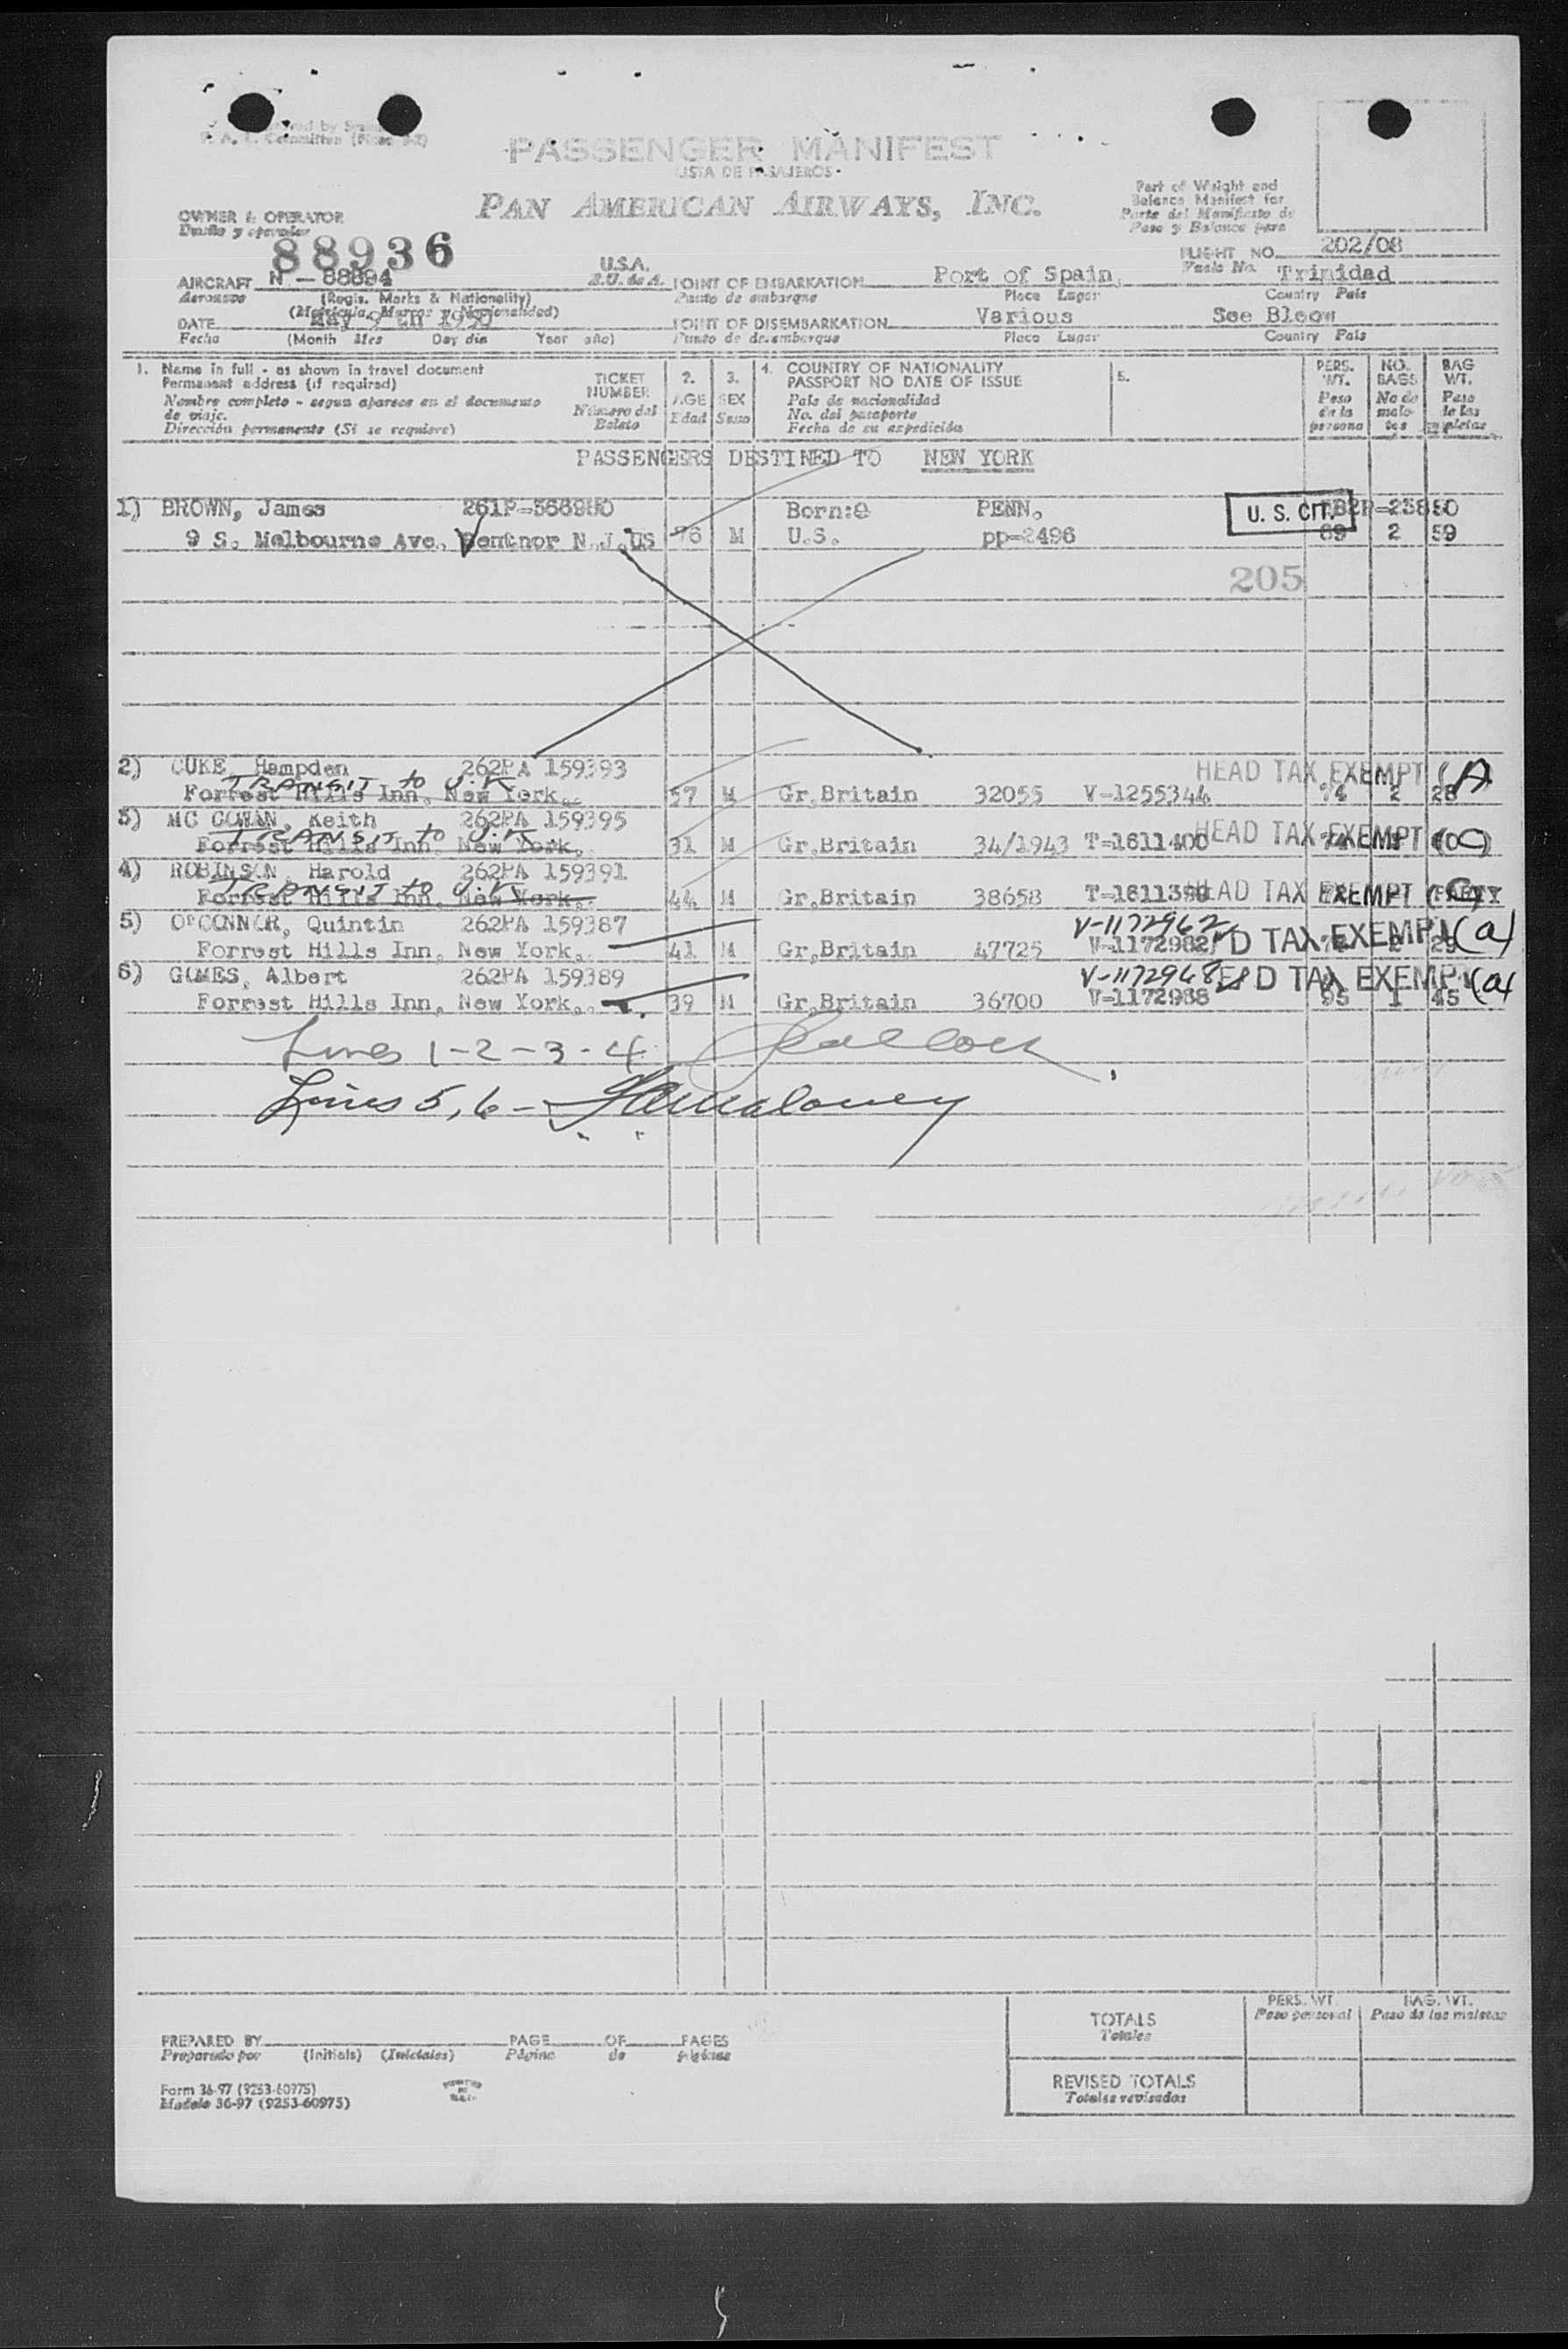 PASSENGER MANIFEST
LISTA DE PASAJEROS
PAN AMERICAN AIRWAYS, INC.
Part of Weight and
Balance Manifest for
Parte del Manifiesto de
Peso y Balance para
OWNER & OPERATOR
Dueño y operador
88936
U.S.A.
E.U. de A.
FLIGHT NO. 202/08
Vuelo No.
AIRCRAFT N - 88894
Aeronave
(Regis. Marks & Nationality)
(Matricula, Marcas y Nacionalidad)
POINT OF EMBARKATION Port of Spain, Trinidad
Punto de embarque Place Lugar Country Pais
DATE May 9 th 1950
Fecha (Month Mes Day dia Year año)
POINT OF DISEMBARKATION Various See Bleow
Punto de desembarque Place Lugar Country Pais
1. Name in full - as shown in travel document
Permanent address (if required)
Nombre completo - segun aparece en el documento
de viaje.
Dirección permanente (Si se requiere)
TICKET
NUMBER
Número del
Boleto
2.
AGE
Edad
3.
SEX
Sexo
4. COUNTRY OF NATIONALITY
PASSPORT NO DATE OF ISSUE
Pais de nacionalidad
No. del pasaporte
Fecha de su expedición
5.
PERS.
WT.
Peso
de la
persona
NO.
BAGS
No de
male-
tas
BAG
WT.
Peso
de las
maletas
PASSENGERS DESTINED TO NEW YORK
1) BROWN, James Born: PENN. U. S. CIT.
9 S. Melbourne Ave. Ventnor N.J. US 76 M U.S. pp-2496 89 2 59
205
2) CUKE, Hampden 262PA 159393 HEAD TAX EXEMPT (A)
TRANSIT to U.K
Forrest Hills Inn, New York. 57 M Gr.Britain 32055 V-1255344 74 2 28
3) MC COWAN, Keith 262PA 159395
TRANSIT to U.K
Forrest Hills Inn, New York. 31 M Gr.Britain 34/1943 T-1611400 HEAD TAX EXEMPT (C)
4) ROBINSON, Harold 262PA 159391
TRANSIT to U.K
Forrest Hills Inn, New York. 44 M Gr.Britain 38658 HEAD TAX EXEMPT (C)
5) O'CONNOR, Quintin 262PA 159387 V-1172962
Forrest Hills Inn, New York. 41 M Gr.Britain 47725 V-1172982 D TAX EXEMPT (a)
6) GOMES, Albert 262PA 159389 V-1172968 D TAX EXEMPT (a)
Forrest Hills Inn, New York. 39 M Gr.Britain 36700 V-1172988 95 1 45
Lines 1-2-3-4
Lines 5, 6 -
PREPARED BY PAGE OF PAGES
Preparado por (Initials) (Iniciales) Página de páginas
Form 36-97 (9253-60975)
Modelo 36-97 (9253-60975)
PERS. WT.
Peso personal
BAG. WT.
Peso de las maletas
TOTALS
Totales
REVISED TOTALS
Totales revisados